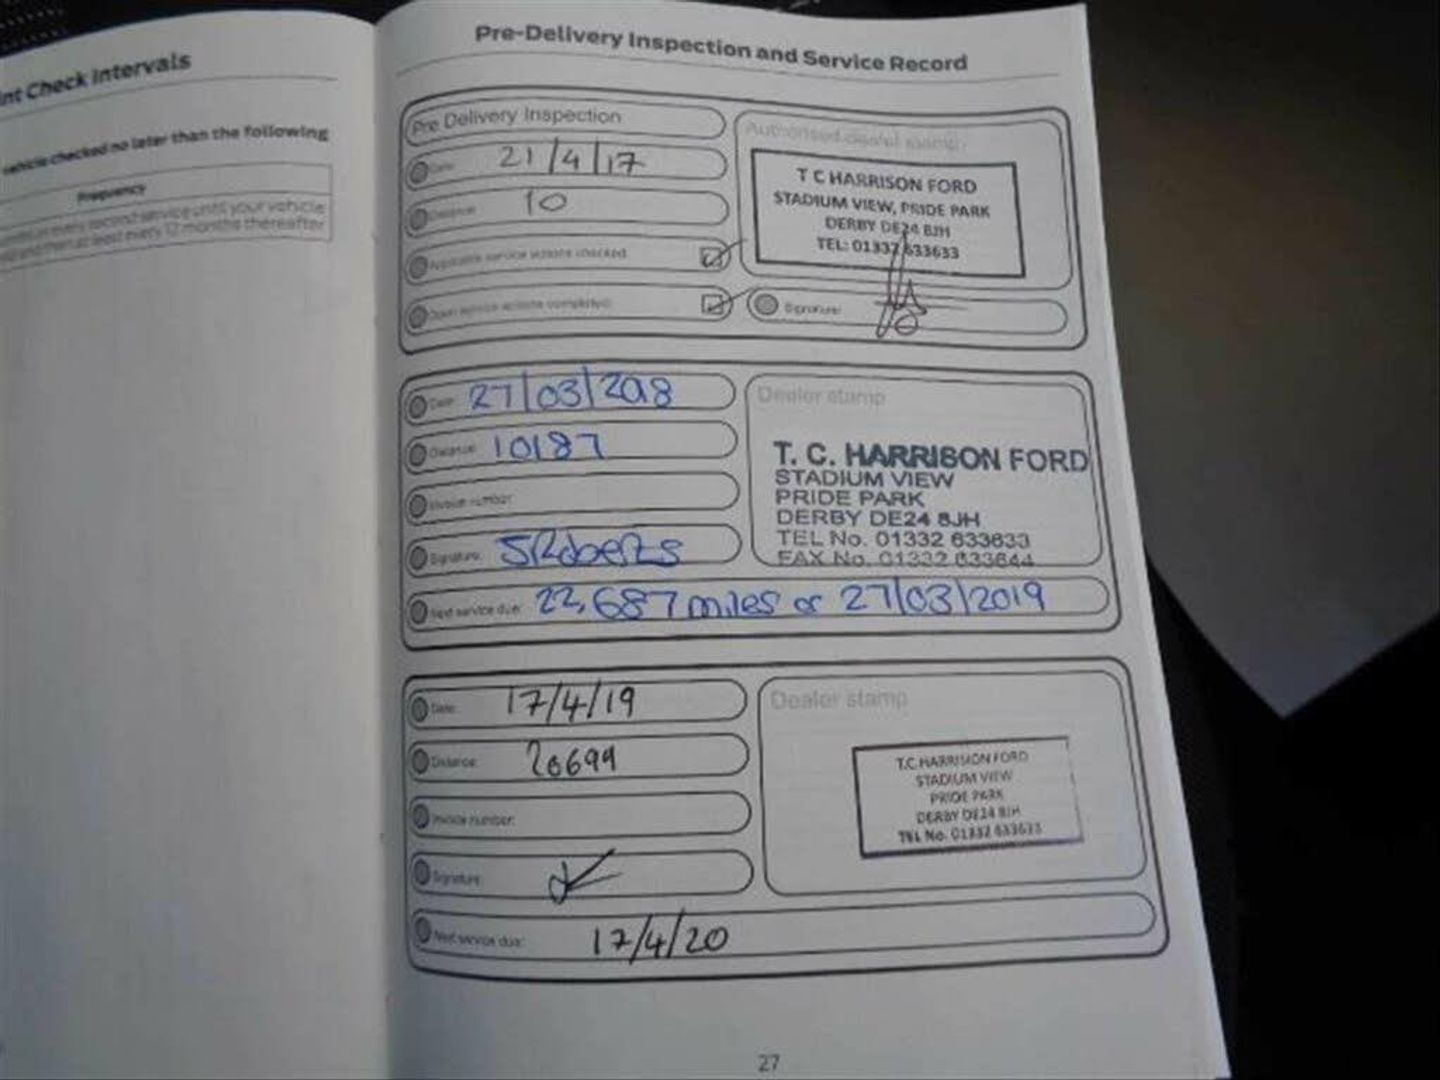 int Check Intervals
vehicle checked no later than the following
Frequency
every second service until your vehicle
and then at least every 12 months thereafter
Pre-Delivery Inspection and Service Record
Pre Delivery Inspection
Date: 21/4/17
Distance: 10
Applicable service actions checked
Open service actions completed:
Authorised dealer stamp
T C HARRISON FORD
STADIUM VIEW, PRIDE PARK
DERBY DE24 8JH
TEL: 01332 633633
Signature:
Date: 27/03/2018
Distance: 10187
Invoice number:
Signature: S Roberts
Next service due: 22,687 miles or 27/03/2019
Dealer stamp
T. C. HARRISON FORD
STADIUM VIEW
PRIDE PARK
DERBY DE24 8JH
TEL No. 01332 633633
FAX No. 01332 633644
Date: 17/4/19
Distance: 20699
Invoice number:
Signature:
Next service due: 17/4/20
Dealer stamp
T.C. HARRISON FORD
STADIUM VIEW
PRIDE PARK
DERBY DE24 8JH
TEL No. 01332 633633
27